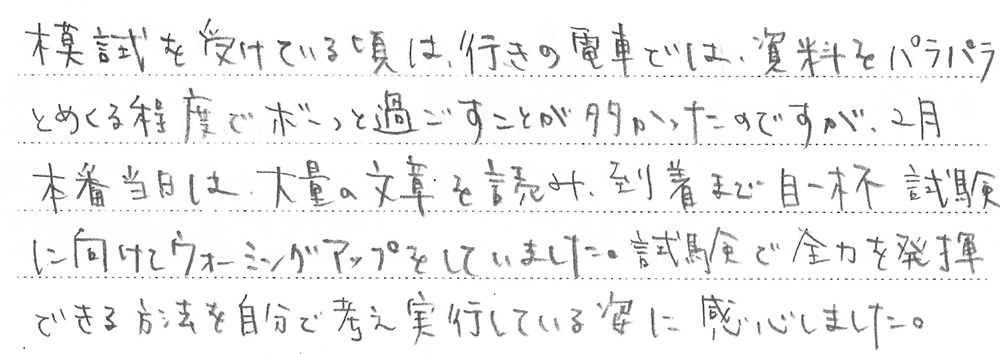 模試を受けている頃は、行きの電車では、資料をパラパラ
とめくる程度でボーっと過ごすことが多かったのですが、2月
本番当日は、大量の文章を読み、到着まで目一杯 試験
に向けてウォーミングアップをしていました。試験で全力を発揮
できる方法を自分で考え実行している姿に感心しました。